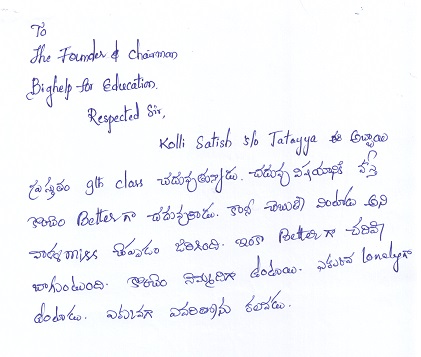 To
The Founder & Chairman
Bighelp for Education.
Respected Sir,
Kolli Satish S/o Tatayya ఈ అబ్బాయి
ప్రస్తుతం 9th class చదువుతున్నాడు. చదువు విషయానికి వస్తే
కొంచెం Better గా చదువుతాడు. కానీ చెబితే వింటాడు అని
వాళ్ళ miss చెప్పడం జరిగింది. ఇంకా Better గా చదివితే
బాగుంటుంది. కొంచెం నెమ్మదిగా ఉంటాడు. ఎక్కువ lonely గా
ఉంటాడు. ఎక్కువగా ఎవరితోను కలవడు.